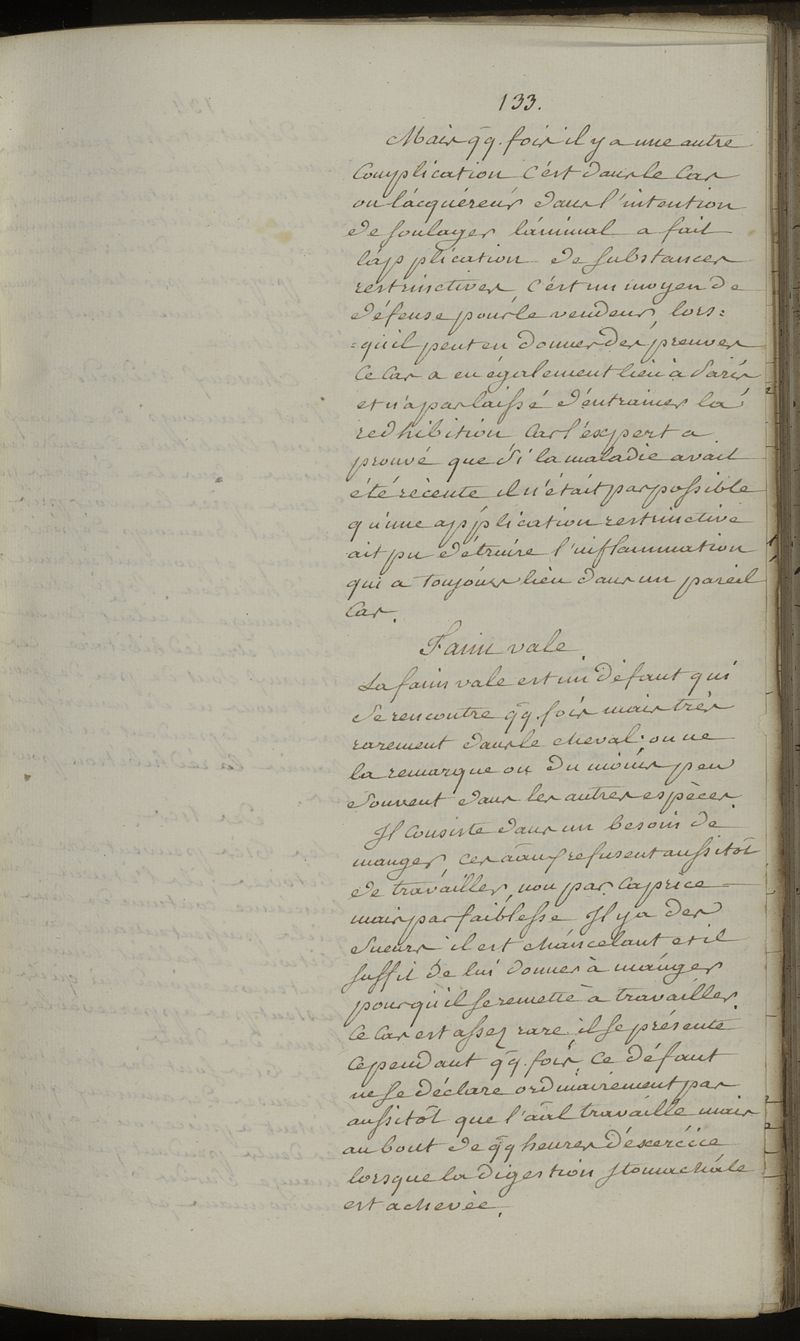 133.
Mais qq. fois il y a une autre
Complication c'ést dans le Cas
ou l'acquéreur dans l'intention
de soulager l'animal a fait
l'application de substances
restrinctives c'ést un moyen de
défense pour le vendeur, lors=
=qu'il peut en donner des preuves
Ce Cas a eu également lieu à Paris
et n'a pas laissé d'entrainer la
redhibition Car l'éxpert a
prouvé que si la maladie avait
été récente il n'était pas possible
qu'une application restrinctive
ait pu détruire l'inflammation
qui a toujours lieu dans un pareil
Cas.
Faim vale.
La faim vale est un défaut qui
se rencontre qq. fois mais très
rarement dans le cheval. on ne
la remarque ou du moins peu
souvent dans les autres espèces.
Il Consiste dans un besoin de
manger, ces aãux refusent aussitôt
de travailler, non par Caprice
mais par faiblesse. Il y a des
sueurs il est chancelant et il
suffit de lui donner à manger
pour qu'il se remette à travailler.
Ce Cas est assez rare, il se présente
Cependant qq. fois Ce défaut
ne se déclare ordinairement pas
aussitôt que l'aãl travaille mais
au bout de qq heures d'éxercice
lorsque la digestion stomachale
est achevée.